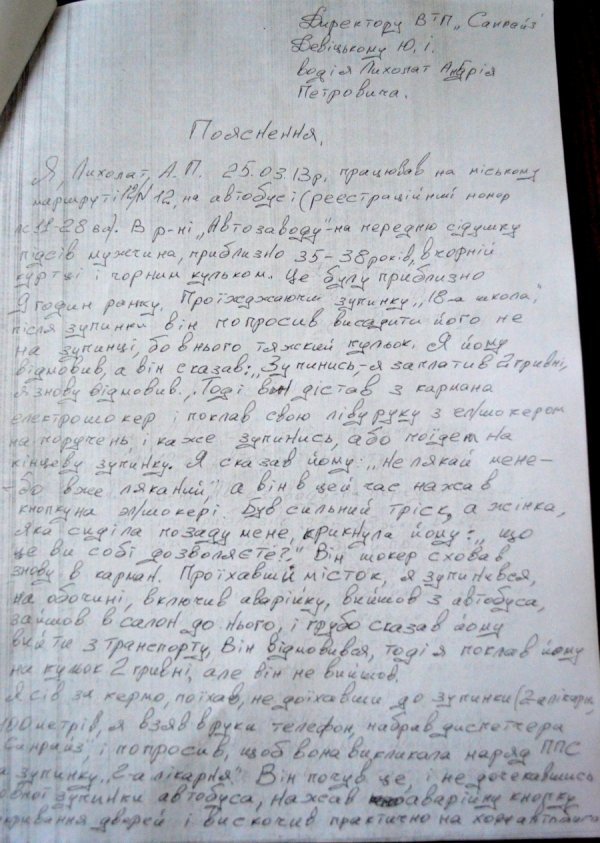 Директору ВТП „Санрайз"
Девіцькому Ю. І.
водія Лихолат Андрія
Петровича.
Пояснення.
Я, Лихолат, А.П. 25.03.13р, працював на міському
маршруті №12, на автобусі (реєстраційний номер
11-28 ва). В р-ні „Автозаводу"-на передню сідушку
підсів мужчина, приблизно 35-38 років, в чорній
куртці і чорним кульком. Це було приблизно
9 годин ранку. Проїжджаючи зупинку „18-а школа",
після зупинки він попросив висадити його не
на зупинці, бо в нього тяжкий кульок. Я йому
відмовив, а він сказав: „Зупинись-я заплатив 2 гривні,
я знову відмовив. Тоді він дістав з кармана
електрошокер і поклав свою ліву руку з ел/шокером
на поручень, і каже зупинись, або поїдем на
кінцеву зупинку. Я сказав йому: „не лякай мене-
-бо вже ляканий", а він в цей час нажав
кнопку на эл/шокері. Був сильний тріск, а жінка,
яка сиділа позаду мене, крикнула йому: „що
це ви собі дозволяєте?." Він шокер сховав
знову в карман. Проїхавши місток, я зупинився,
на обочині, включив аварійку, вийшов з автобуса,
зайшов в салон до нього, і грубо сказав йому
вийти з транспорту, Він відмовився, тоді я поклав йому
на кульок 2 гривні, але він не вийшов.
Я сів за кермо, поїхав, не доїхавши до зупинки (2-а лікарня,
100 метрів, я взяв в руки телефон, набрав диспетчера
Санрайз, і попросив, щоб вона викликала наряд ППС
а зупинку „2-а лікарня". Він почув це, і не дочекавшись
зупинки автобуса, нажав аварійну кнопку
кривання дверей і вискочив практично на ходу